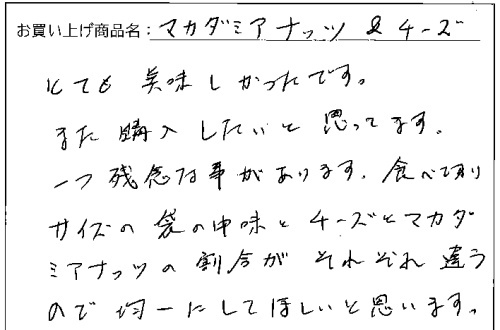 お買い上げ商品名：マカダミアナッツ＆チーズ
とても美味しかったです。
また購入したいと思ってます。
一つ残念な事があります。食べ切り
サイズの袋の中味とチーズとマカダ
ミアナッツの割合がそれぞれ違う
ので均一にしてほしいと思います。